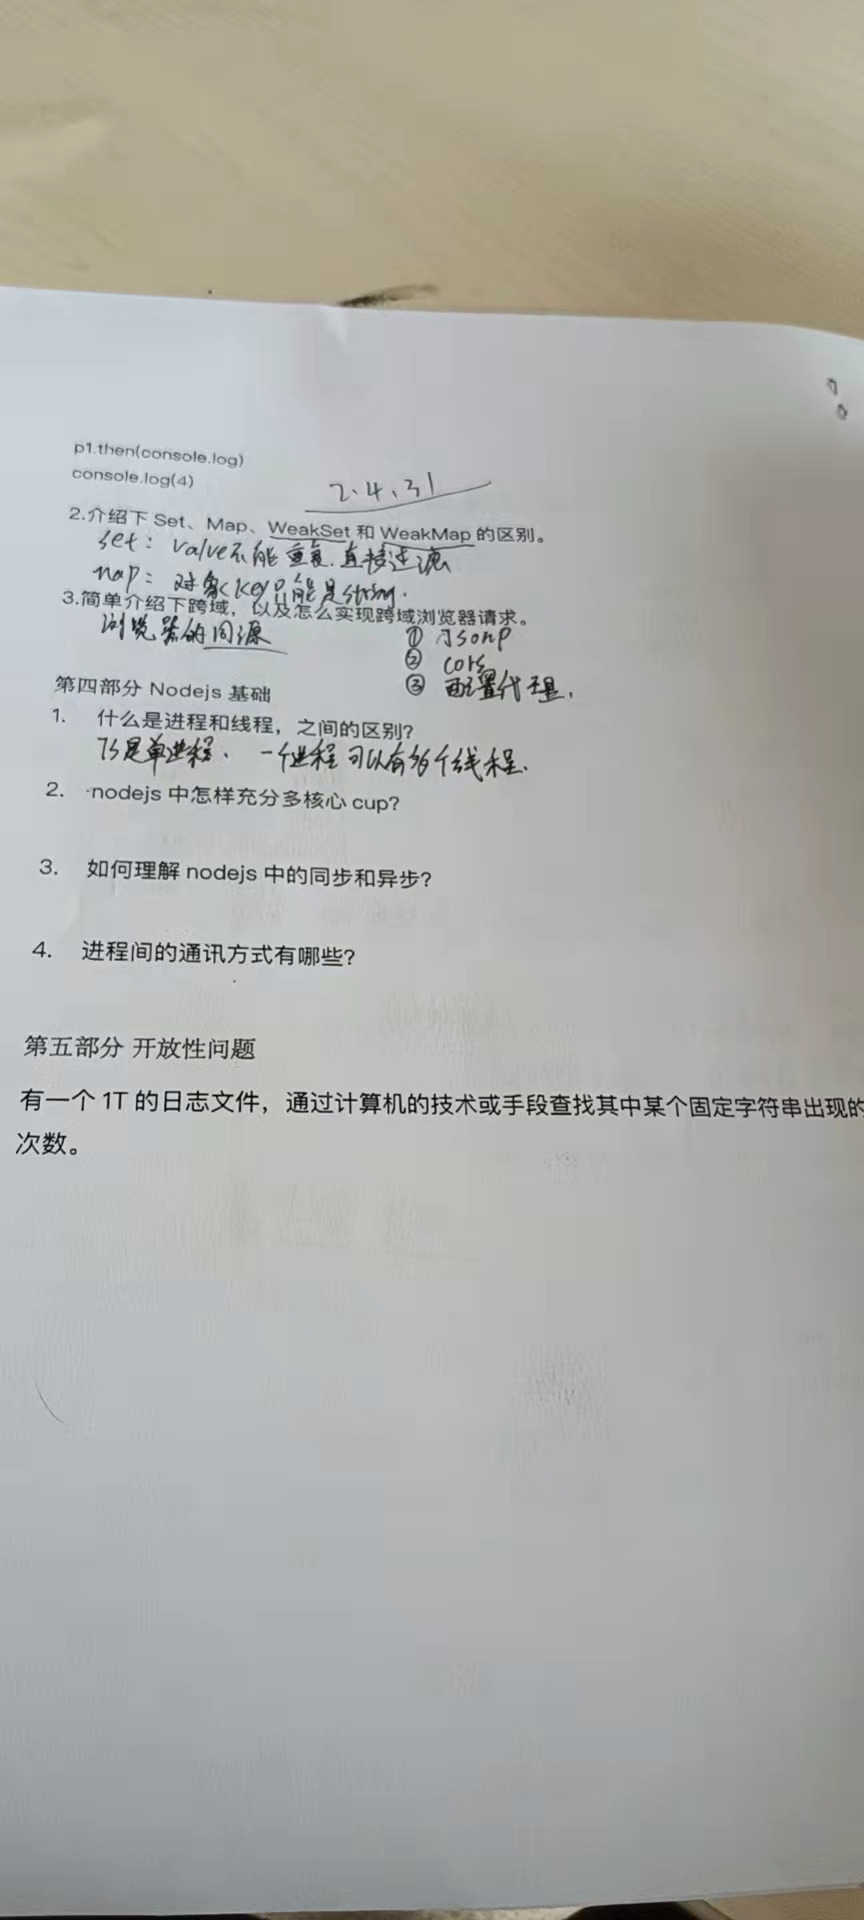 p1.then(console.log)
console.log(4)
2.4.31
2.介绍下 Set、Map、WeakSet 和 WeakMap 的区别。
set: value不能重复.直接过滤
map: 对象<key只能是string.
3.简单介绍下跨域，以及怎么实现跨域浏览器请求。
浏览器的同源
① Jsonp
② cors
③ 配置代理.
第四部分 Nodejs 基础
1. 什么是进程和线程，之间的区别？
JS是单进程. 一个进程可以有多个线程.
2. nodejs 中怎样充分多核心 cup?
3. 如何理解 nodejs 中的同步和异步?
4. 进程间的通讯方式有哪些?
第五部分 开放性问题
有一个 1T 的日志文件，通过计算机的技术或手段查找其中某个固定字符串出现的
次数。